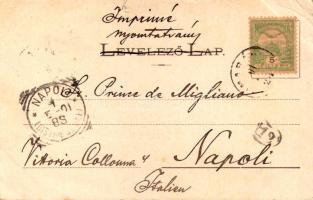 Imprimé
nyomtatvány
LEVELEZŐ LAP.
S. Prince de Migliano
Vittoria Collouna 4 Napoli
Italien
NAPOLI
5-01
8S